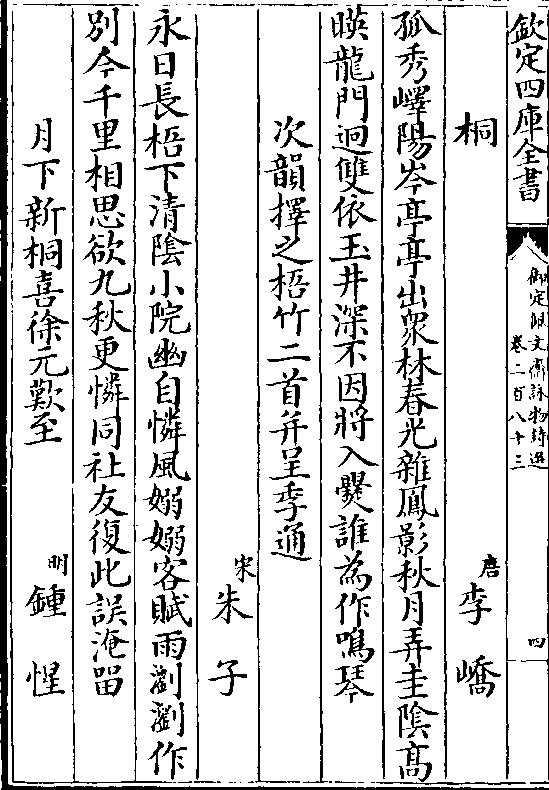 欽定四庫全書
御定佩文齋詠物詩選
卷二百八十三
四
桐
唐李嶠
孤秀嶧陽岑亭亭出衆林春光雜鳳影秋月弄圭隂髙
暎龍門迥雙依玉井深不因將入爨誰為作鳴琴
次韻擇之梧竹二首并呈季通
宋朱子
永日長梧下清隂小院幽自憐風嫋嫋客賦雨瀏瀏作
别今千里相思欲九秋更憐同社友復此誤淹留
月下新桐喜徐元歎至
明鍾惺